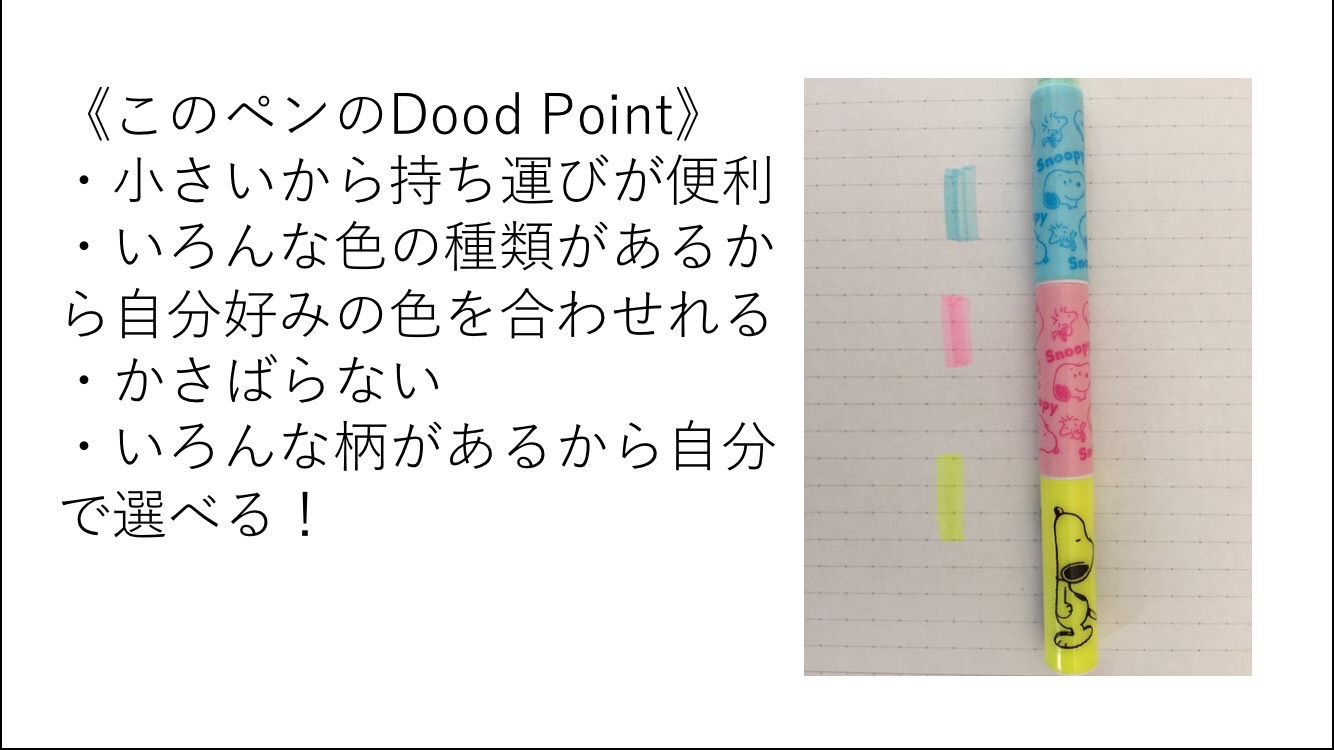 《このペンのDood Point》
・小さいから持ち運びが便利
・いろんな色の種類があるか
ら自分好みの色を合わせれる
・かさばらない
・いろんな柄があるから自分
で選べる！
Snoopy
Snoopy